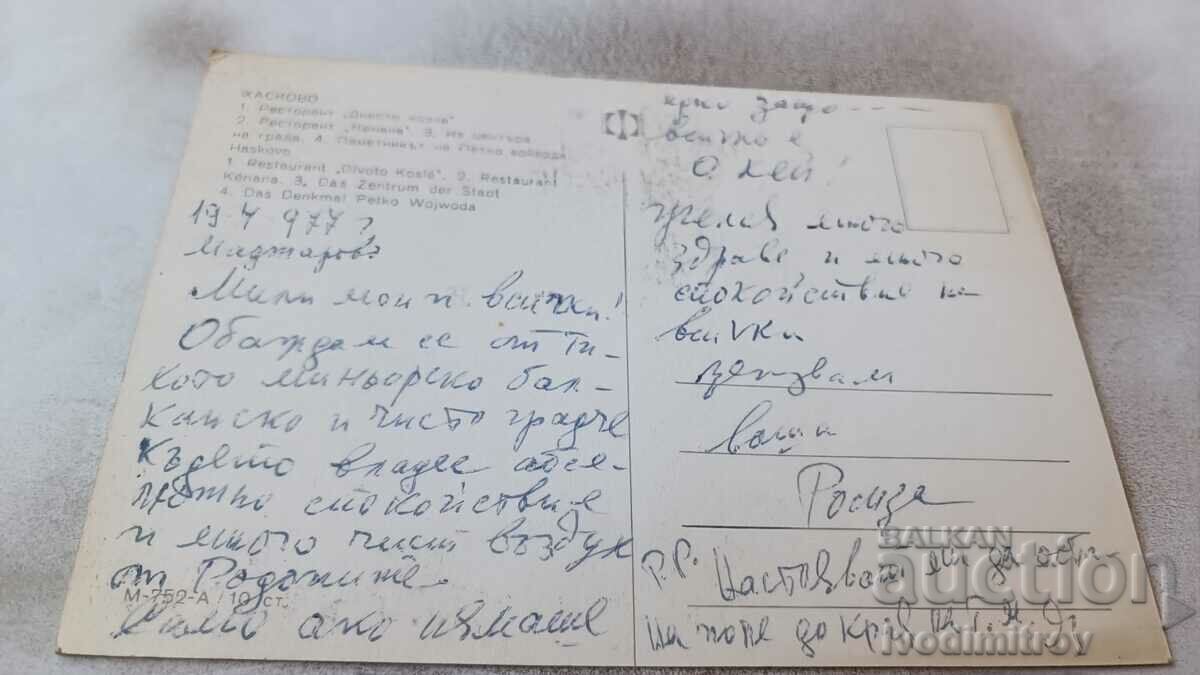 ХАСКОВО
1. Ресторант „Дивото козле"
2. Ресторант „Кенана" 3. Из центъра
на града. 4. Паметникът на Петко войвода
Haskovo
1. Restaurant „Divoto Koslé", 2. Restaurant
Kenana. 3. Das Zentrum der Stadt
4. Das Denkmal Petko Wojwoda
19 977 г
Маджарово
Мили мои и всички!
Обаждам се от ти-
хото миньорско бал-
канско и чисто градче
където владее абсо-
лютно спокойствие
и много чист въздух
от Родопите.
М-752-А 10 ст.
Само ако нямаше
защо
всичко е
О кей!
Желая много
здраве и много
спокойствие на
всички
ваша
Росица
P.P. Настояват да оста-
на поне до края на
BALKAN
auction
ivodimitrov